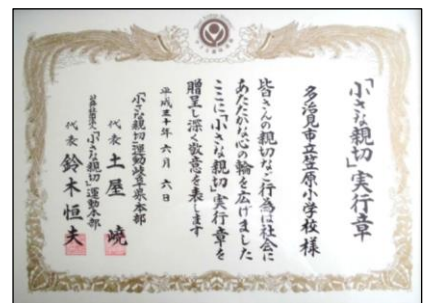 「小さな親切」実行章
多治見市立笠原小学校 様
皆さんの親切なご行為は社会に
あたたかな心の輪を広げました
ここに「小さな親切」実行章を
贈呈し深く敬意を表します
平成三十年 六月 六日
「小さな親切」運動岐阜県本部
代表 土屋 嶢
公益社団法人「小さな親切」運動本部
代表 鈴木 恒夫